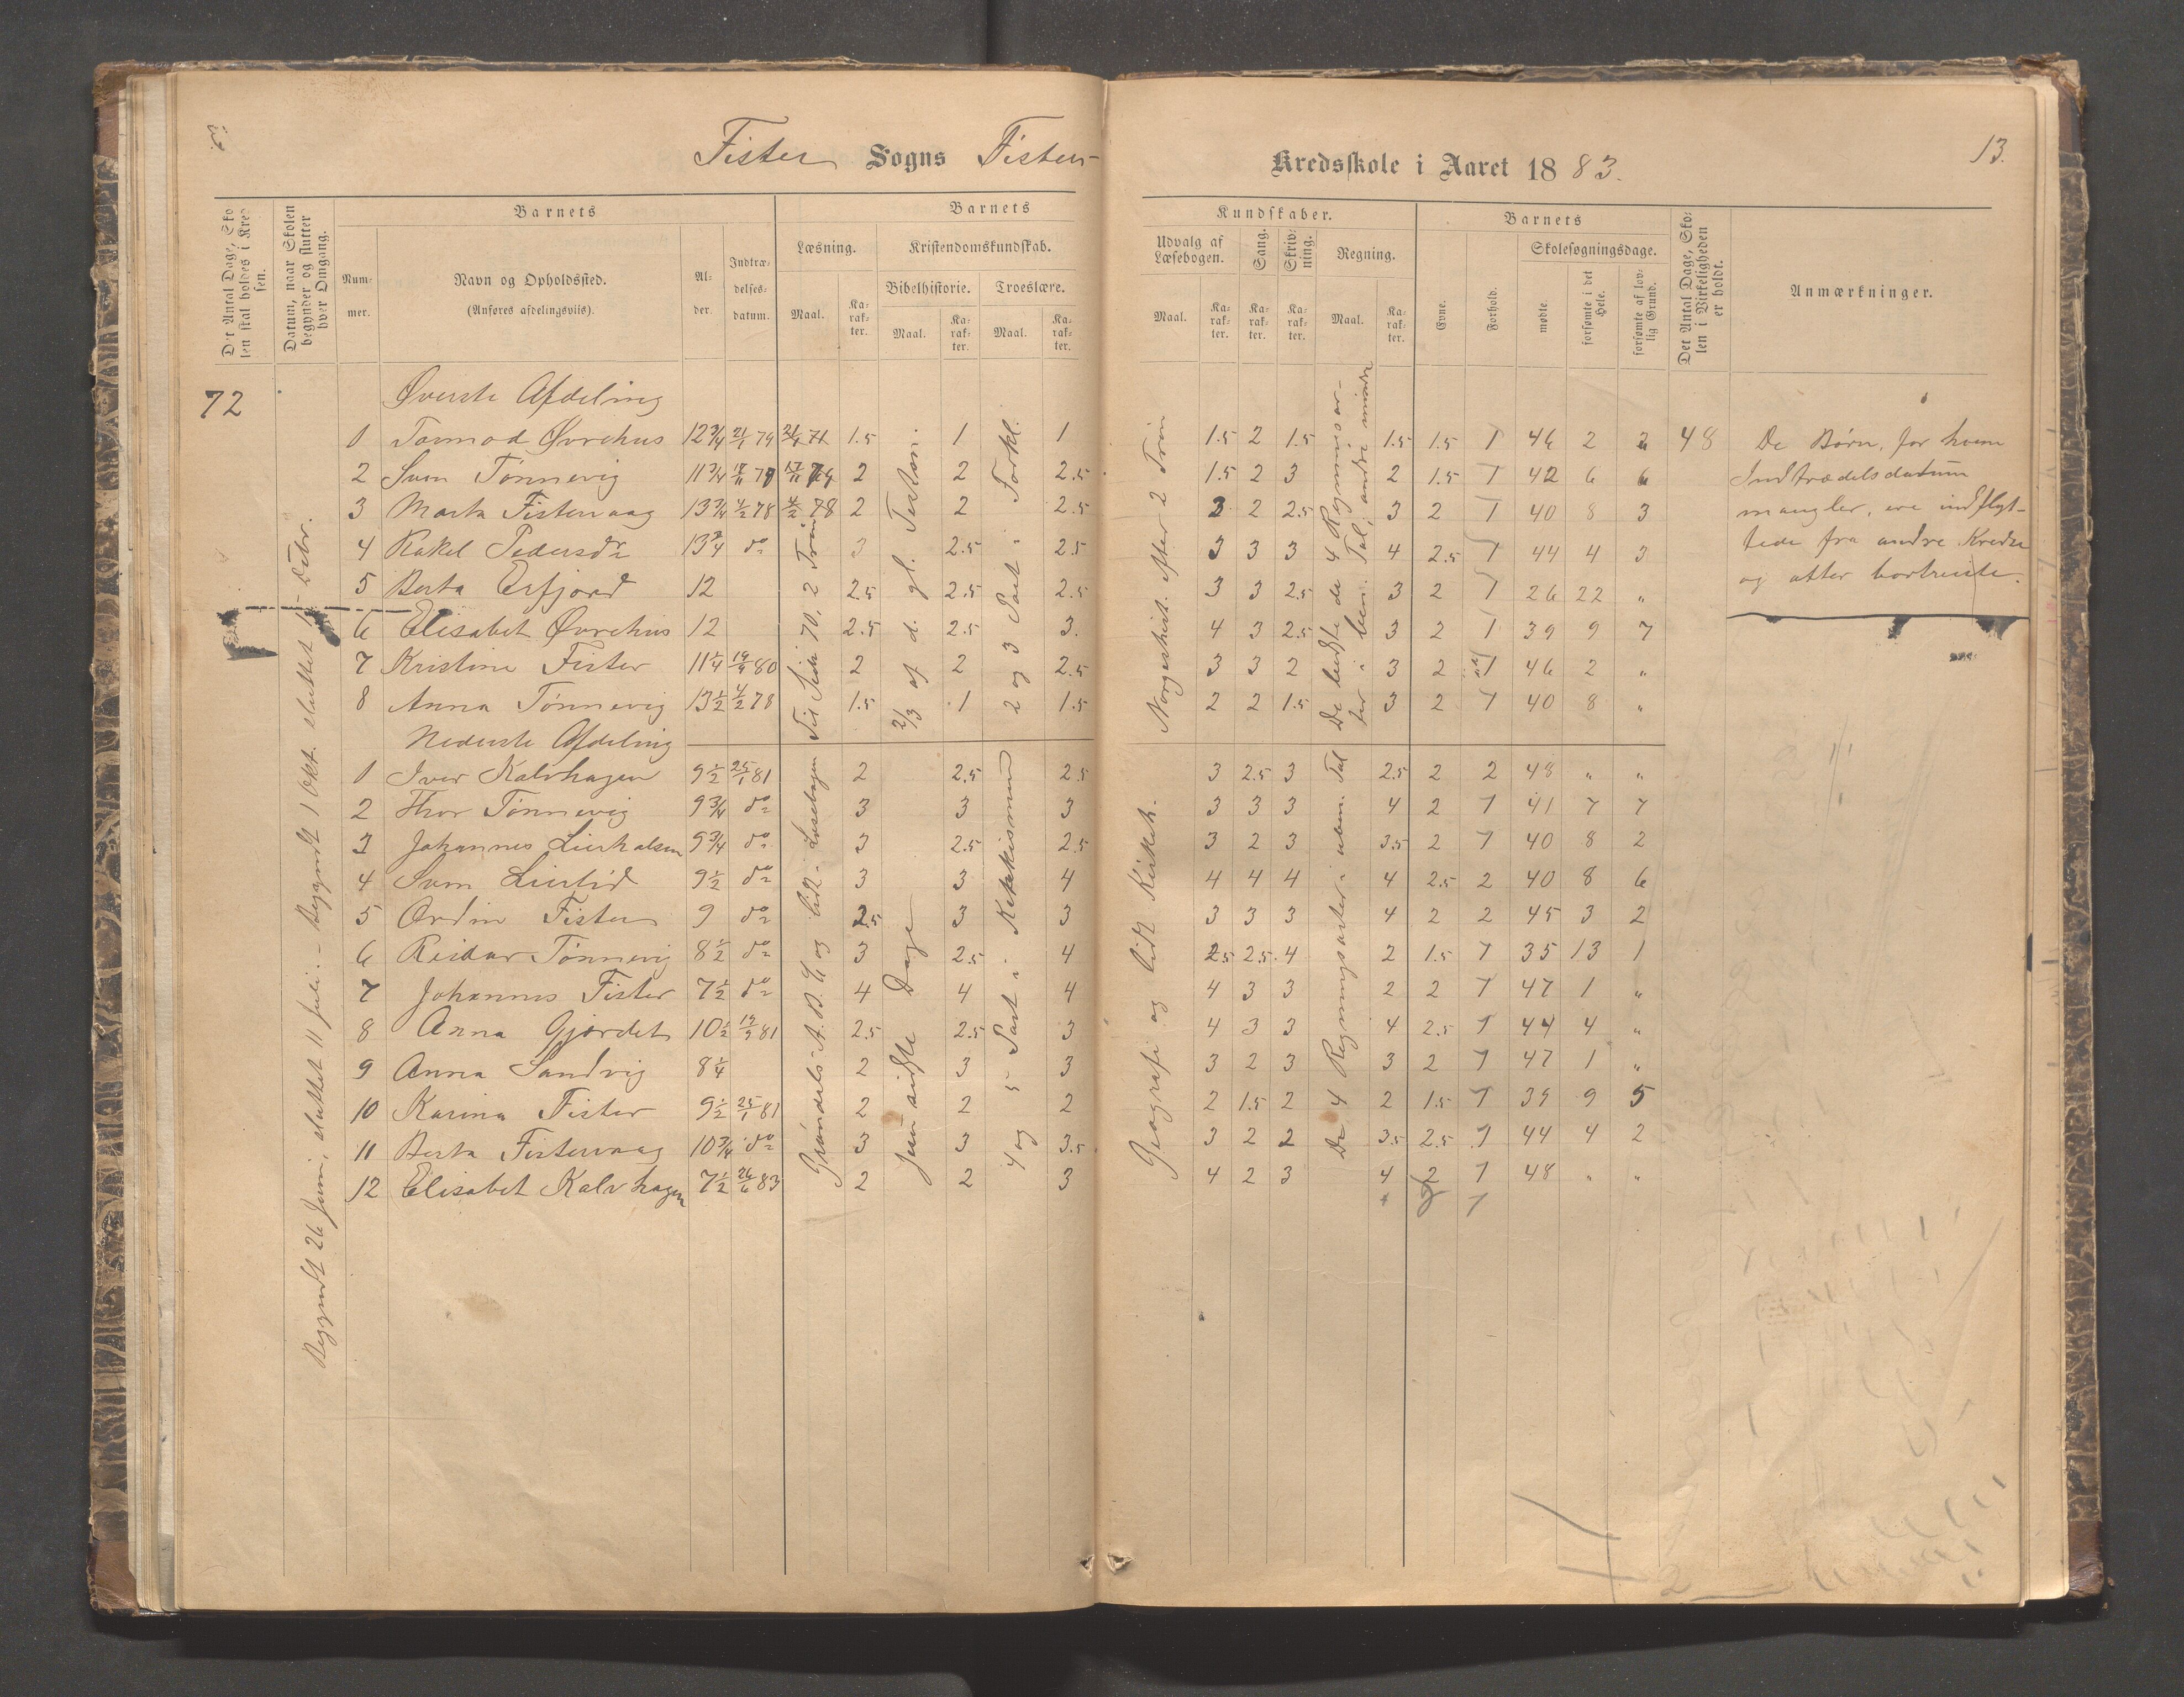 Fister Sogns Fister-
Kredsskole i Aaret 1883.
13.
Det Antal Dage, Skolen skal holdes i Kredsen.
Datum, naar Skolen begynder og slutter hver Omgang.
Barnets
Nummer.
Navn og Opholdssted.
(Anføres afdelingsviis).
Alder.
Indtrædelsesdatum.
Barnets
Læsning.
Kristendomskundskab.
Bibelhistorie.
Troeslære.
Maal.
Karakter.
Maal.
Karakter.
Maal.
Karakter.
Kundskaber.
Udvalg af Læsebogen.
Sang.
Skrivning.
Regning.
Maal.
Karakter.
Karakter.
Karakter.
Maal.
Karakter.
Barnets
Evne.
Forhold.
Skolesøgningsdage.
mødte
forsømte i det Hele.
forsømte af lovlig Grund.
Det Antal Dage, Skolen i Virkeligheden er holdt.
Anmærkninger.
72
Begyndt 26 Juni, sluttet 11 Juli. - Begyndt 1 Okt. sluttet
Øverste Afdeling
1 Tormod Øvrehus 12 3/4 21/1 79 1.5 1 1 1.5 2 1.5 1.5 1.5 1 46 2 2 48
2 Sven Tønnevig 11 3/4 2 2 2.5 1.5 2 3 2 1.5 1 42 6 6
3 Marta Fistervaag 13 3/4 4/2 78 4/2 78 2 2 2.5 3 2 2.5 3 2 1 40 8 3
4 Rakel Pedersdr 13 3/4 do 3 2.5 2.5 3 3 3 4 2.5 1 44 4 3
5 Berta Erfjord 12 2.5 2.5 2.5 3 3 2.5 3 2 1 26 22 "
6 Elisabet Øvrehus 12 2.5 2.5 3. 4 3 2.5 3 2 1 39 9 7
7 Kristine Fister 11 1/4 19/9 80 2 2 2.5 3 3 2 3 2 1 46 2 "
8 Anna Tønnevig 13 1/2 4/2 78 1.5 1 1.5 2 2 1.5 3 2 1 40 8 "
Til Side 70, 2 Trin
2/3 af d. gl. Testam.
2 og 3 Part i Forkl.
Norgeshist. efter 2 Trin
De lærdte de 4 Regningsarter i ben. Tal, andre mindre
De Børn, for hvem
Indtrædelsesdatum
mangler, ere indflyt-
tede fra andre Kredse
og atter bortreiste.
Nederste Afdeling
1 Iver Kalvhagen 9 1/2 25/1 81 2 2.5 2.5 3 2.5 3 2.5 2 2 48 " "
2 Thor Tønnevig 9 3/4 do 3 3 3 3 3 3 4 2 1 41 7 7
3 Johannes Lierhalsen 9 3/4 do 3 2.5 2.5 3 2 3 3.5 2 1 40 8 2
4 Sven Lierlid 9 1/2 do 3 3 4 4 4 4 4 2.5 2 40 8 6
5 Ordin Fister 9 do 2.5 3 3 3 3 3 4 2 2 45 3 2
6 Reidar Tønnevig 8 1/2 do 3 2.5 4 2.5 2.5 4 2 1.5 1 35 13 1
7 Johannes Fister 7 1/2 do 4 4 4 4 3 3 2 2 1 47 1 "
8 Anna Gjerdet 10 1/2 19/9 81 2.5 2.5 3 4 3 3 4 2.5 1 44 4 "
9 Anna Sandvig 8 1/4 2 3 3 3 2 3 3 2 1 47 1 "
10 Karina Fister 9 1/2 25/1 81 2 2 2 2 1.5 2 2 1.5 1 39 9 5
11 Berta Fistervaag 10 3/4 do 3 3 3.5 3 2 2 3.5 2.5 1 44 4 2
12 Elisabet Kalvhagen 7 1/2 26/6 83 2 2 3 4 2 3 4 2 1 48 " "
A.B.C og lidt i Læsebogen
Jesu sidste Dage
4 og 5 Part i Katekismus
Geografi og lidt
De 4 Regningsarter i uben. Tal